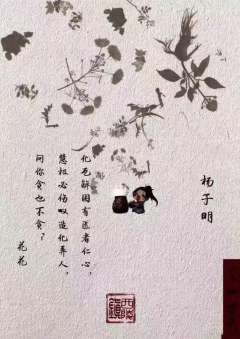 杨子明
化危解困有医者仁心，
慧极必伤叹造化弄人，
问你贪也不贪？
花花